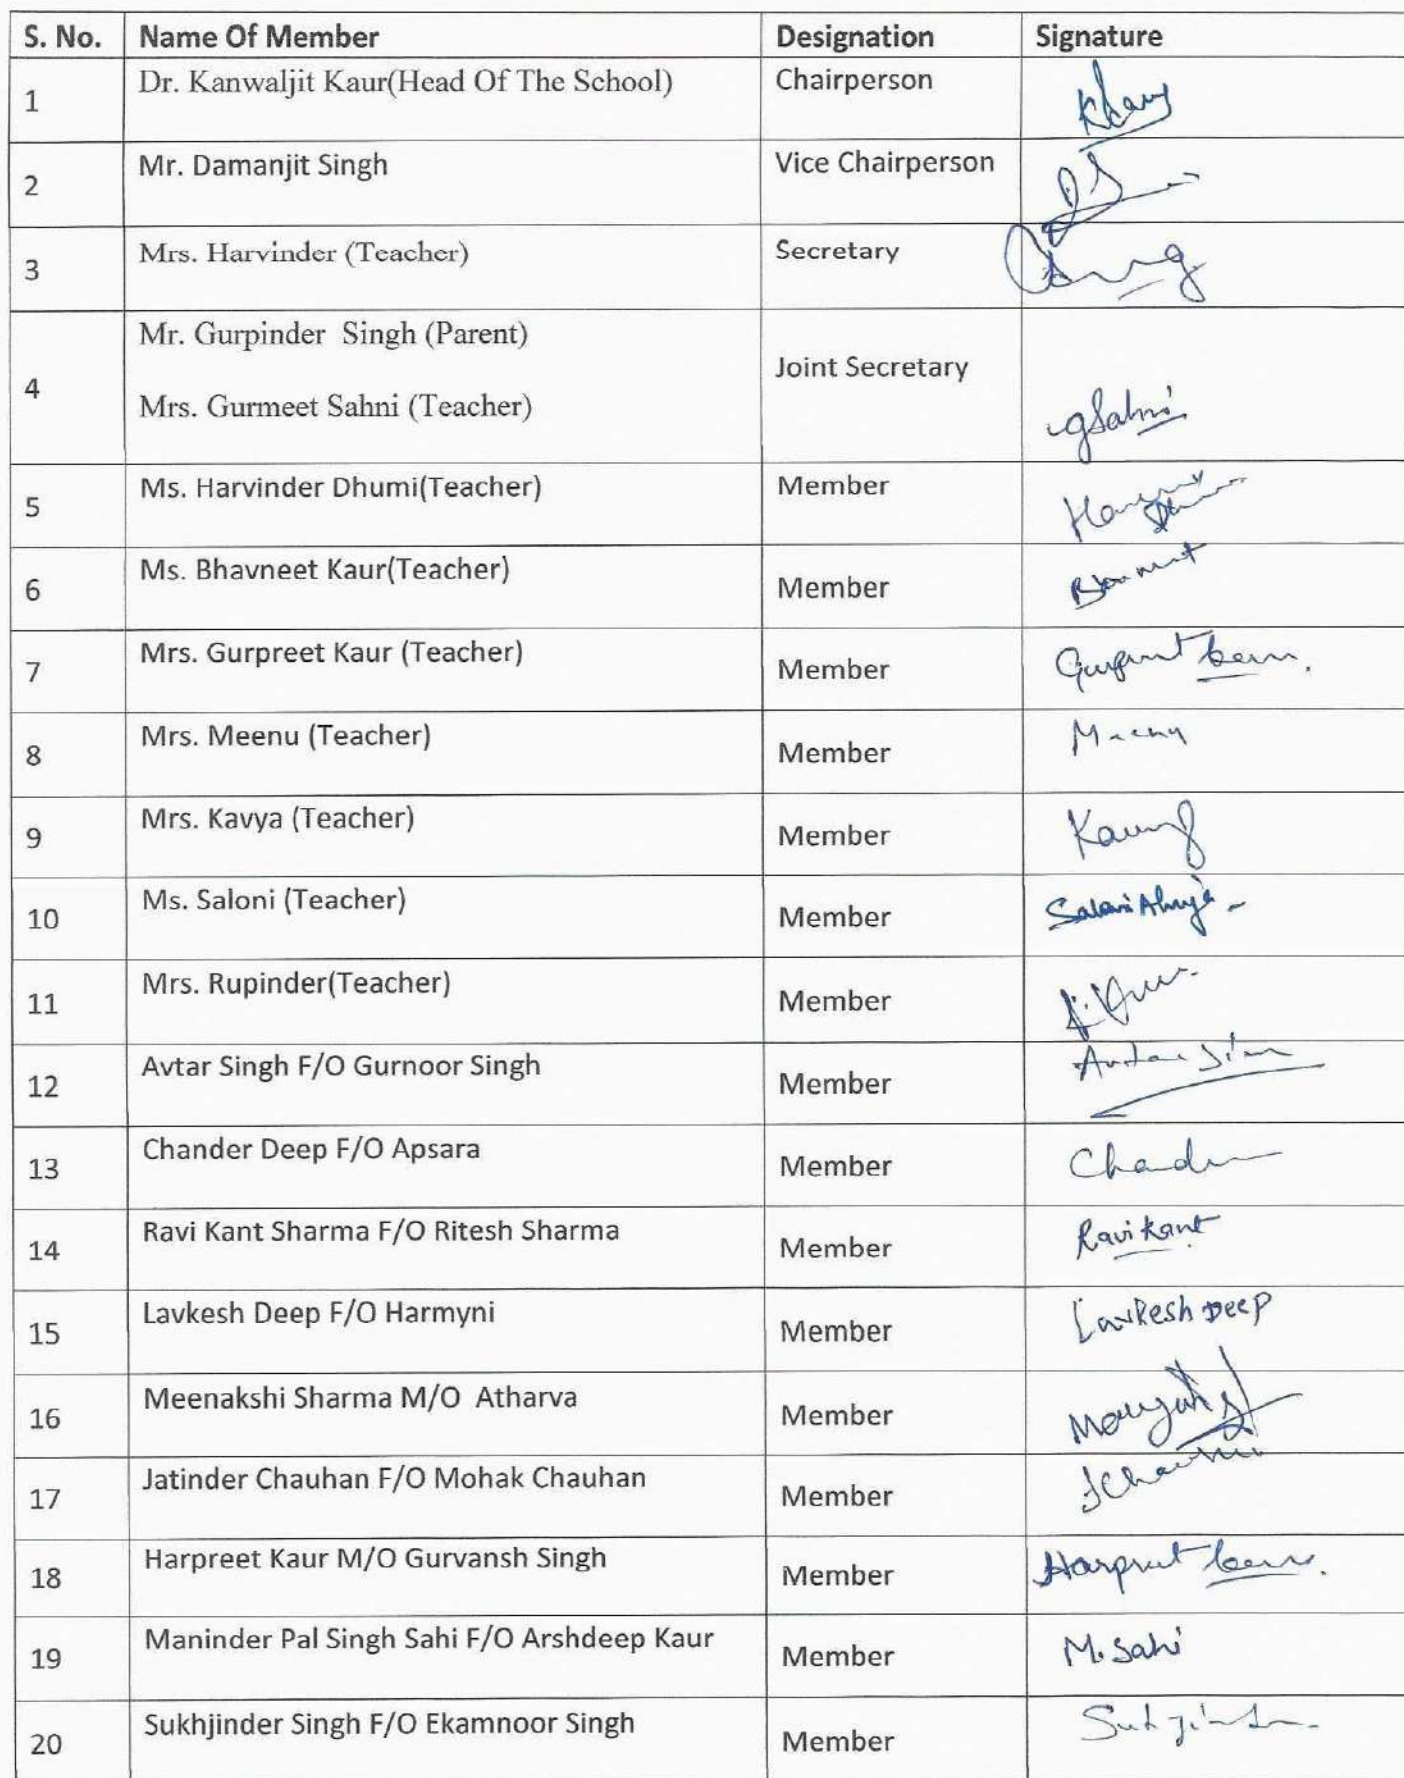 S. No. Name Of Member Designation Signature
1 Dr. Kanwaljit Kaur(Head Of The School) Chairperson
2 Mr. Damanjit Singh Vice Chairperson
3 Mrs. Harvinder (Teacher) Secretary
4 Mr. Gurpinder Singh (Parent) Joint Secretary
Mrs. Gurmeet Sahni (Teacher) gSahni
5 Ms. Harvinder Dhumi(Teacher) Member
6 Ms. Bhavneet Kaur(Teacher) Member
7 Mrs. Gurpreet Kaur (Teacher) Member Gurpreet Kaur.
8 Mrs. Meenu (Teacher) Member Meenu
9 Mrs. Kavya (Teacher) Member
10 Ms. Saloni (Teacher) Member Saloni Ahuja
11 Mrs. Rupinder(Teacher) Member
12 Avtar Singh F/O Gurnoor Singh Member
13 Chander Deep F/O Apsara Member
14 Ravi Kant Sharma F/O Ritesh Sharma Member Ravi Kant
15 Lavkesh Deep F/O Harmyni Member Lavkesh Deep
16 Meenakshi Sharma M/O Atharva Member
17 Jatinder Chauhan F/O Mohak Chauhan Member
18 Harpreet Kaur M/O Gurvansh Singh Member Harpreet Kaur.
19 Maninder Pal Singh Sahi F/O Arshdeep Kaur Member M. Sahi
20 Sukhjinder Singh F/O Ekamnoor Singh Member